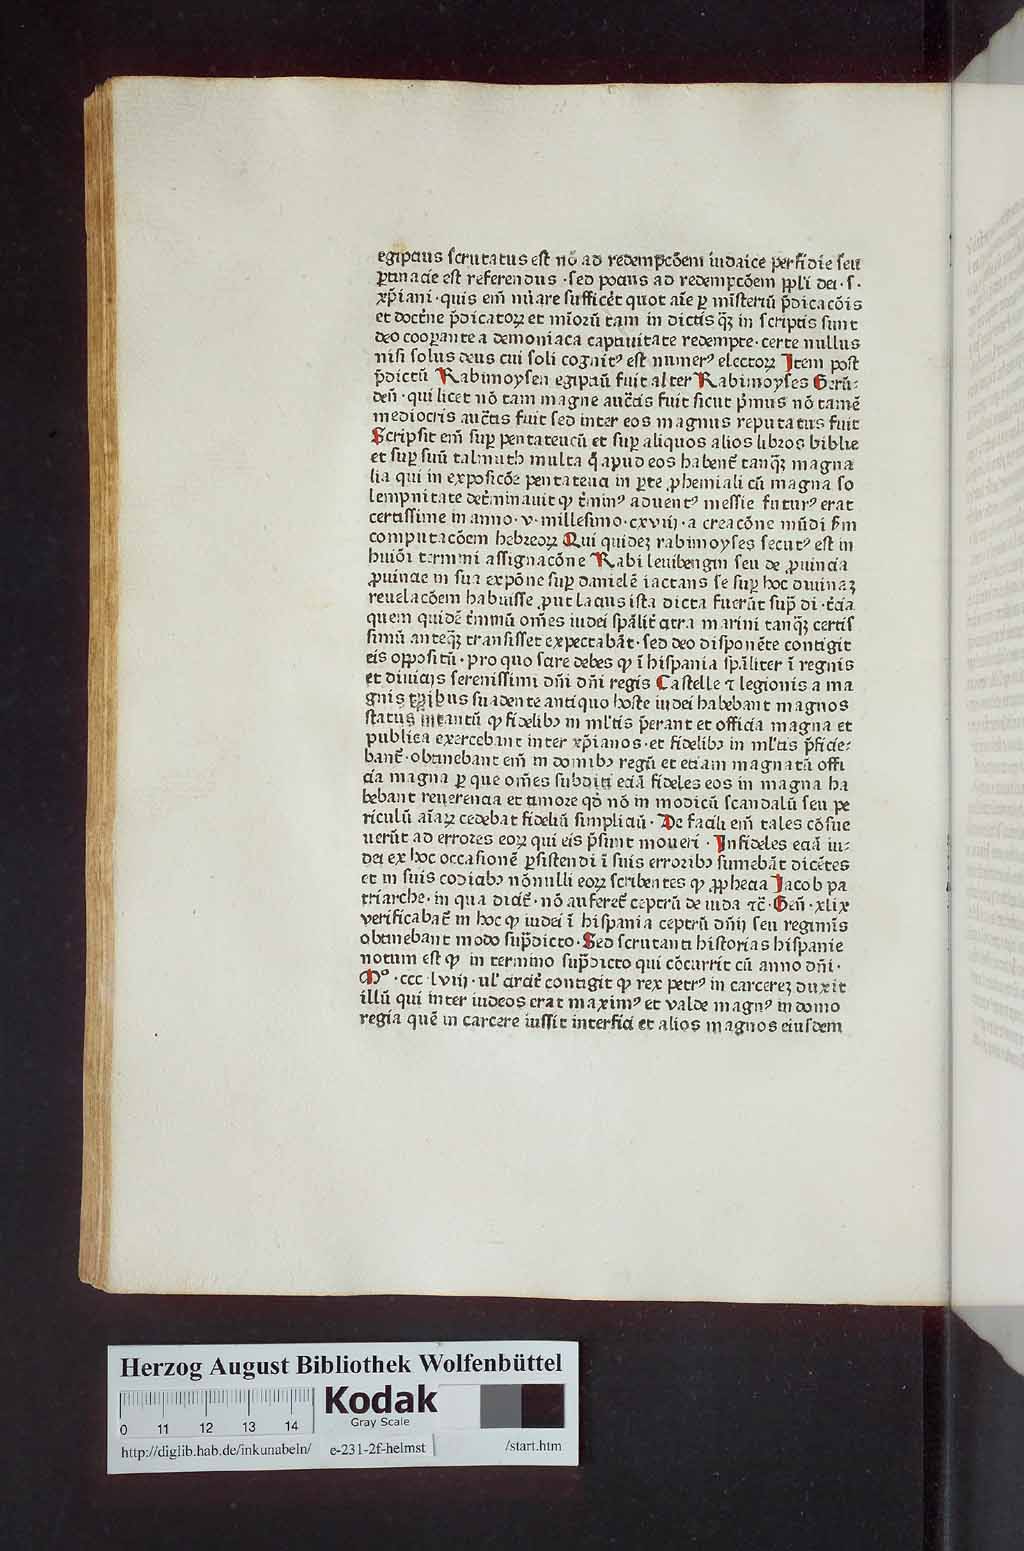 egipcius scrutatus est nō ad redempcōem iudaice perfidie seu
ꝑtinacie est referendus · sed pocius ad redempcōem ppl̄i dei · s ·
xp̄iani · quis em̄ mirare sufficēt quot aīe ꝑ mīsteriū p̄dicacōis
et doctrīe p̄dicatoꝝ et mīorū tam in dictis qȝ in scriptis sunt
deo cooꝑante a demoniaca captiuitate redempte · certe nullus
nisi solus deus cui soli cognitꝰ est numerꝰ electoꝝ Item post
p̄dictū Rabimoysen egipciū fuit alter Rabimoyses Gerū⸗
deñ · qui licet nō tam magne auctīs fuit sicut p̄mus nō tamē
mediocris auctīs fuit sed inter eos magnus reputatus fuit
Scripsit em̄ suꝑ pentateucū et suꝑ aliquos alios libros biblie
et suꝑ suū talmuth multa q̄ apud eos habent̄ tanqȝ magna
lia qui in exposicōe pentateuci in ꝑte ꝓhemiali cū magna so
lempnitate det̄minauit ꝙ t̄minꝰ aduentꝰ messie futurꝰ erat
certissime in anno · v · millesimo · cxviij · a creacōne mūdi s̄m
computacōem hebreoꝝ Qui quideȝ rabimoyses secutꝰ est in
huiōi termini assignacōne Rabi leuibengin seu de ꝓuincia
ꝓuincie in sua expōne suꝑ danielē iactans se suꝑ hoc diuinaȝ
reuelacōem habuisse ꝓut lacius ista dicta fuerūt sup̄ di · t̄cia
quem quidē t̄minū om̄es iudei sp̄alit̄ citra marini tanqȝ certis
simū anteqȝ transisset expectabāt · sed deo disponēte contigit
eis oppositū · pro quo scire debes ꝙ ī hispania sp̄aliter ī regnis
et diuicijs serenissimi dn̄i dn̄i regis Castelle ⁊ legionis a ma
gnis tp̄ibus suadente antiquo hoste iudei habebant magnos
status intantū ꝙ fidelibꝰ in ml̄tis p̄erant et officia magna et
publica exercebant inter xp̄ianos · et fidelibꝰ in ml̄tis p̄ficie⸗
bant̄ · obtinebant em̄ in domibꝰ regū et etiam magnatū offi
cia magna ꝑ que om̄es subditi eciā fideles eos in magna ha
bebant reuerencia et timore qđ nō in modicū scandalū seu pe
riculū aīaꝝ cedebat fideliū simpliciū · De facili em̄ tales cōsue
uerūt ad errores eoꝝ qui eis p̄sunt moueri · Infideles eciā iu⸗
dei ex hoc occasionē ꝑsistendi ī suis erroribꝰ sumebāt dicētes
et in suis codicibꝰ nōnulli eoꝝ scribentes ꝙ ꝓphecia Jacob pa
triarche · in qua dicit̄ · nō auferet̄ ceptrū de iuda ⁊c̄ · Geñ · xlix
verificabat̄ in hoc ꝙ iudei ī hispania ceptrū dn̄ij seu regimīs
obtinebant modo sup̄dicto · Sed scrutanti historias hispanie
notum est ꝙ in termino sup̄dicto qui cōcurrit cū anno dn̄i ·
Mº · ccc · lviij · ul̄ circit̄ contigit ꝙ rex petrꝰ in carcereȝ duxit
illū qui inter iudeos erat maximꝰ et valde magnꝰ in domo
regia quē in carcere iussit interfici et alios magnos eiusdem
Herzog August Bibliothek Wolfenbüttel
Kodak
Gray Scale
0 11 12 13 14
http://diglib.hab.de/inkunabeln/ e-231-2f-helmst /start.htm